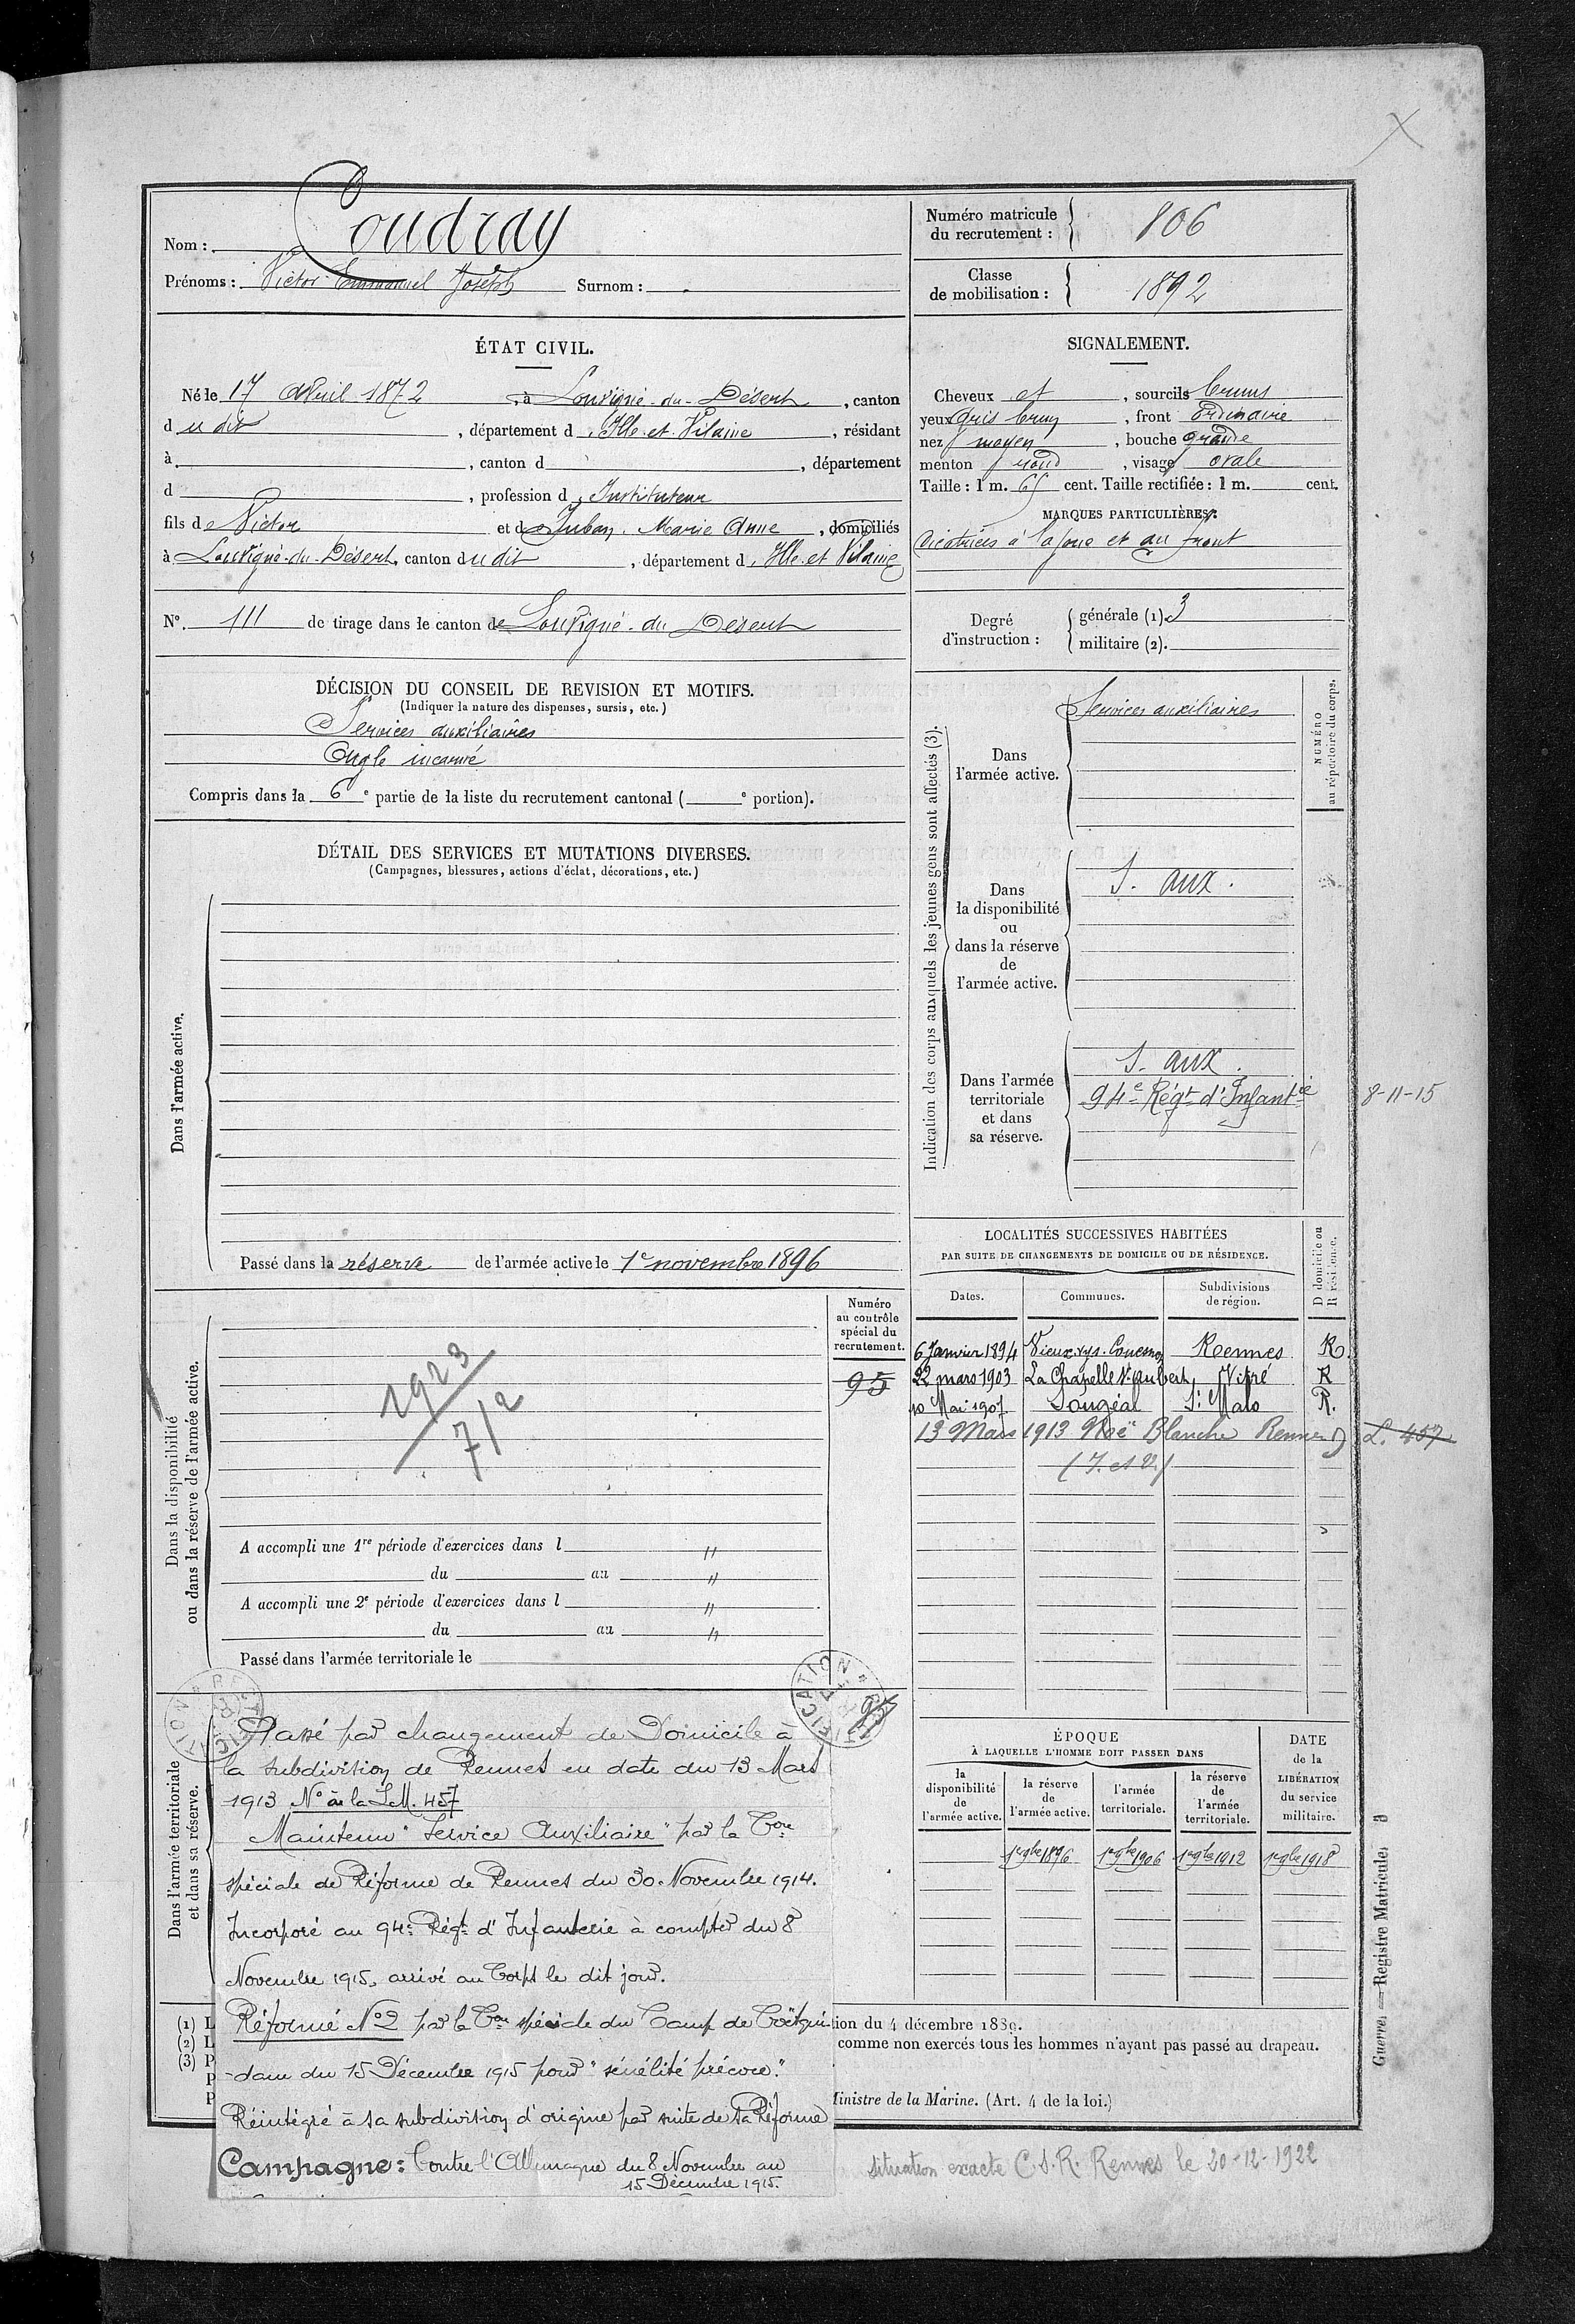 Nom : Coudray
Prénoms : Victor Emmanuel Joseph Surnom :
Numéro matricule
du recrutement : 806
Classe
de mobilisation : 1892
ÉTAT CIVIL.
Né le 17 Avril 1872, à Louvigné-du-Désert, canton
du dit, département d'Ille et Vilaine, résidant
à, canton d, département
d, profession d'Instituteur
fils de Victor et de Juban, Marie Anne, domiciliés
à Louvigné-du-Désert, canton du dit, département d'Ille et Vilaine
N°. 111 de tirage dans le canton de Louvigné-du-Désert
SIGNALEMENT.
Cheveux et, sourcils bruns
yeux gris brun, front ordinaire
nez moyen, bouche grande
menton rond, visage ovale
Taille : 1 m. 65 cent. Taille rectifiée : 1 m. cent.
MARQUES PARTICULIÈRES :
Cicatrices à la joue et au front
Degré
d'instruction :
générale (1). 3
militaire (2).
DÉCISION DU CONSEIL DE REVISION ET MOTIFS.
(Indiquer la nature des dispenses, sursis, etc.)
Services auxiliaires
Ongle incarné
Compris dans la 6e partie de la liste du recrutement cantonal ( e portion).
DÉTAIL DES SERVICES ET MUTATIONS DIVERSES.
(Campagnes, blessures, actions d'éclat, décorations, etc.)
Dans l'armée active.
Passé dans la réserve de l'armée active le 1er novembre 1896
Indication des corps auxquels les jeunes gens sont affectés (3).
NUMÉRO
au répertoire du corps.
Dans
l'armée active.
Services auxiliaires
Dans
la disponibilité
ou
dans la réserve
de
l'armée active.
S. aux.
Dans l'armée
territoriale
et dans
sa réserve.
S. aux.
94e Régt d'Infantie 8-11-15
LOCALITÉS SUCCESSIVES HABITÉES
PAR SUITE DE CHANGEMENTS DE DOMICILE OU DE RÉSIDENCE.
Dates. Communes. Subdivisions
de région.
D domicile ou
R résidence.
6 Janvier 1894 Vieux-vy-s-Couesnon Rennes R.
22 mars 1903 La Chapelle St Aubert Vitré R
10 Mai 1907 Sougéal St Malo R.
13 Mars 1913 Noë Blanche Rennes D L. 457
(I. et V.)
Dans la disponibilité
ou dans la réserve de l'armée active.
Numéro
au contrôle
spécial du
recrutement.
95
1923
7/2
A accompli une 1re période d'exercices dans l "
du au "
A accompli une 2e période d'exercices dans l "
du au "
Passé dans l'armée territoriale le
Dans l'armée territoriale
et dans sa réserve.
Passé par changement de Domicile à
la subdivision de Rennes en date du 13 Mars
1913 N° à la L.M. 457
Maintenu "Service Auxiliaire" par la Con
spéciale de Réforme de Rennes du 30 Novembre 1914.
Incorporé au 94e Régt d'Infanterie à compter du 8
Novembre 1915, arrivé au Corps le dit jour.
Réformé N°2 par la Con spéciale du Camp de Coëtqui-
-dam du 15 Décembre 1915 pour "sénélité précoce".
Réintégré à sa subdivision d'origine par suite de sa Réforme
Campagne : Contre l'Allemagne du 8 Novembre au
15 Décembre 1915.
ÉPOQUE
À LAQUELLE L'HOMME DOIT PASSER DANS
la
disponibilité
de
l'armée active.
la réserve
de
l'armée active.
l'armée
territoriale.
la réserve
de
l'armée
territoriale.
DATE
de la
LIBÉRATION
du service
militaire.
1er 9bre 1896 1er 9bre 1906 1er 9bre 1912 1er 9bre 1918
(1) L
(2) L
(3) P
P
P
tion du 4 décembre 1889.
comme non exercés tous les hommes n'ayant pas passé au drapeau.
Ministre de la Marine. (Art. 4 de la loi.)
Guerre. — Registre Matricule.
situation exacte C.S.R. Rennes le 20-12-1922